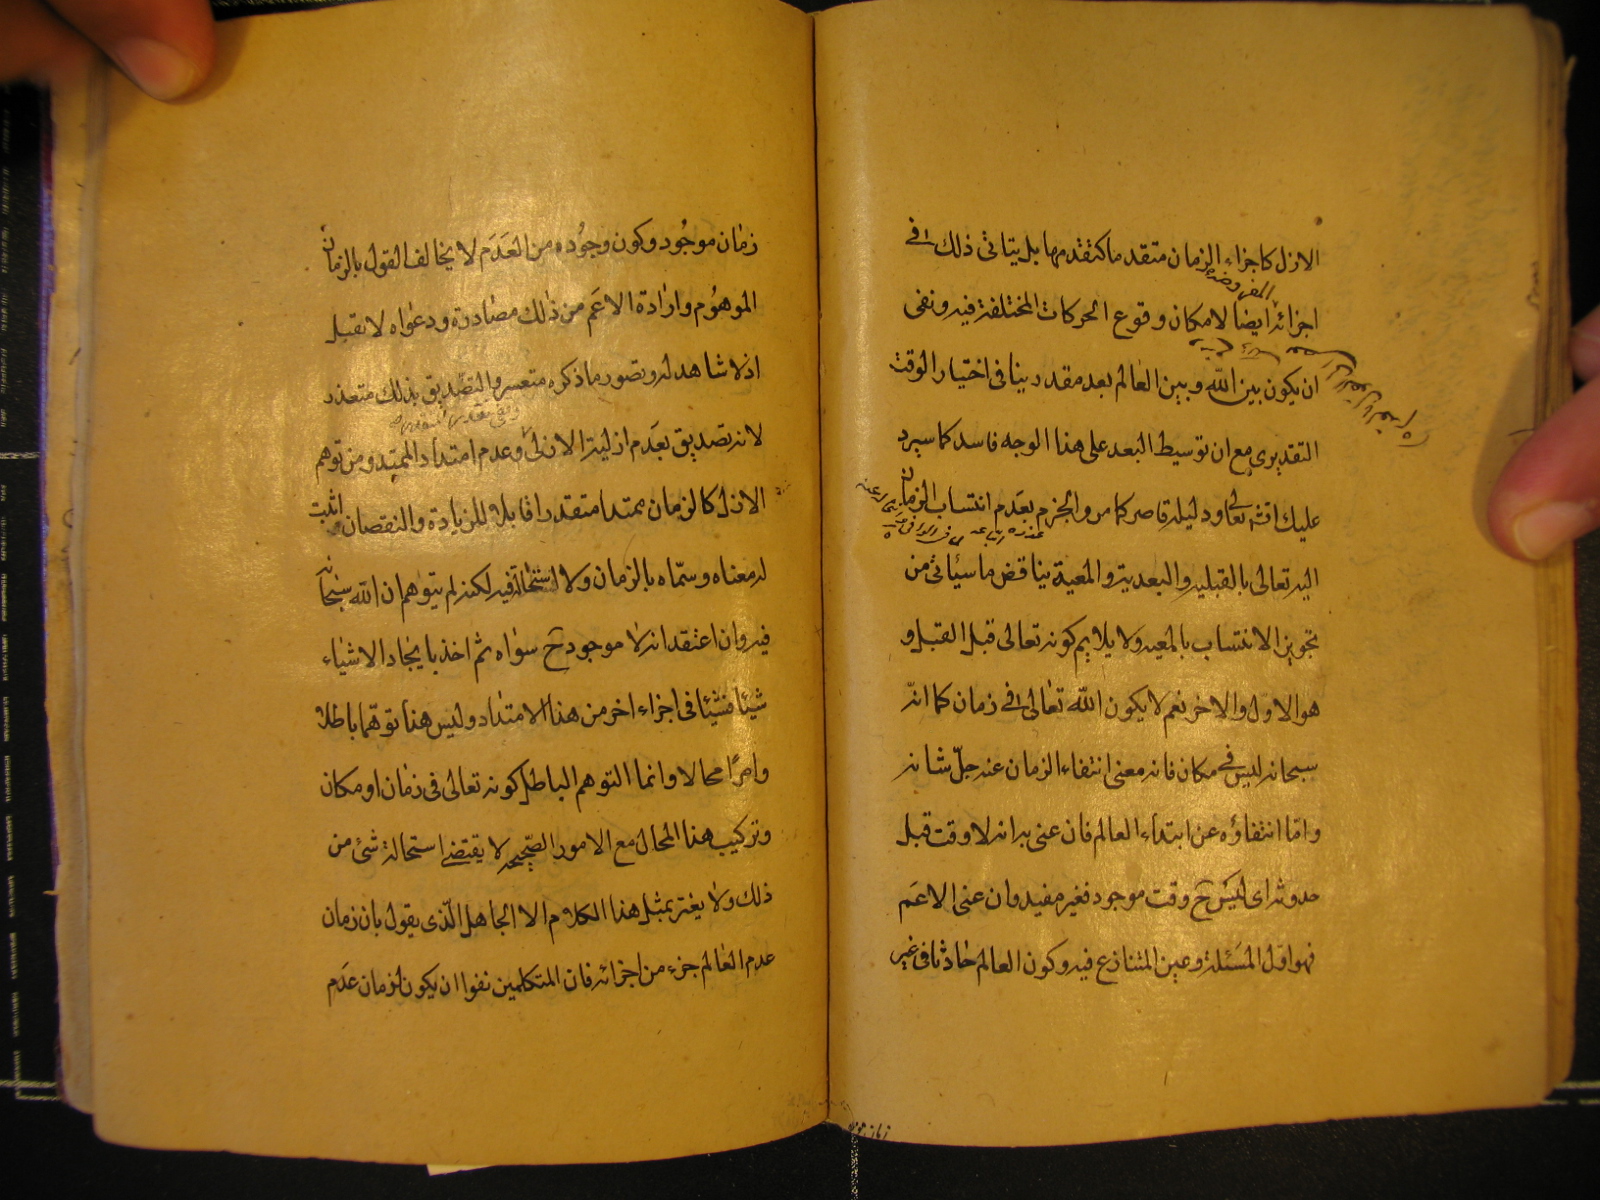 الازل كاجزاء الزمان متقدما كتقدمها بل يتاتى ذلك فى
المفروضة
اجزائه ايضا لامكان وقوع الحركات المختلفة فيه ونفى
ان يكون بين الله وبين العالم بعد مقدر ينافى اختيار الوقت
التقديرى مع ان توسيط البعد على هذا الوجه فاسد كما سيرد
عليك انشٓ تعالى ودليله قاصر كما مر والجزم بعدم انتساب الزمان
اليه تعالى بالقبلية والبعدية والمعية يناقض ما سيأتى من
تجويز الانتساب بالمعية ولا يلايم كونه تعالى قبل القبل و
هو الاول والاخر نعم لا يكون الله تعالى فى زمان كما انه
سبحانه ليس فى مكان فانه معنى انتفاء الزمان عنه جلّ شانه
وامّا انتفاؤه عن ابتداء العالم فان عنى به انه لا وقت قبل
حدوثه اى ليس ح وقت موجود فغير مفيد وان عنى الاعم
فهو اول المسئلة وعين المتنازع فيه وكون العالم حادثا فى غير
زمان موجود
زمان موجود وكون وجوده من العدم لا يخالف القول بالزمان
الموهوم وارادة الاعم من ذلك مصادرة ودعواه لا تقبل
اذ لا شاهد له وتصور ما ذكره متعسر والتصديق بذلك متعذر
لانه تصديق بعدم ازلية الازلى وعدم امتداد الممتد ومن توهم
الازل كالزمان ممتدا متقدرا قابلا للزيادة والنقصان اثبت
له معناه وسمّاه بالزمان ولا استحالة فيه لكنه لم يتوهم ان الله سبحانه
فيه وان اعتقد انه لا موجود ح سواه ثم اخذ بايجاد الاشياء
شيئا فشيئا فى اجزاء اخر من هذا الامتداد وليس هذا توهّما باطلا
وامرًا محالا وانما التوهم الباطل كونه تعالى فى زمان او مكان
وتركيب هذا المحال مع الامور الصّحيحه لا يقتضى استحالة شئ من
ذلك ولا يغتر بمثل هذا الكلام الا الجاهل الّذى يقول بان زمان
عدم العالم جزء من اجزائه فان المتكلمين نفوا ان يكون لزمان عدم